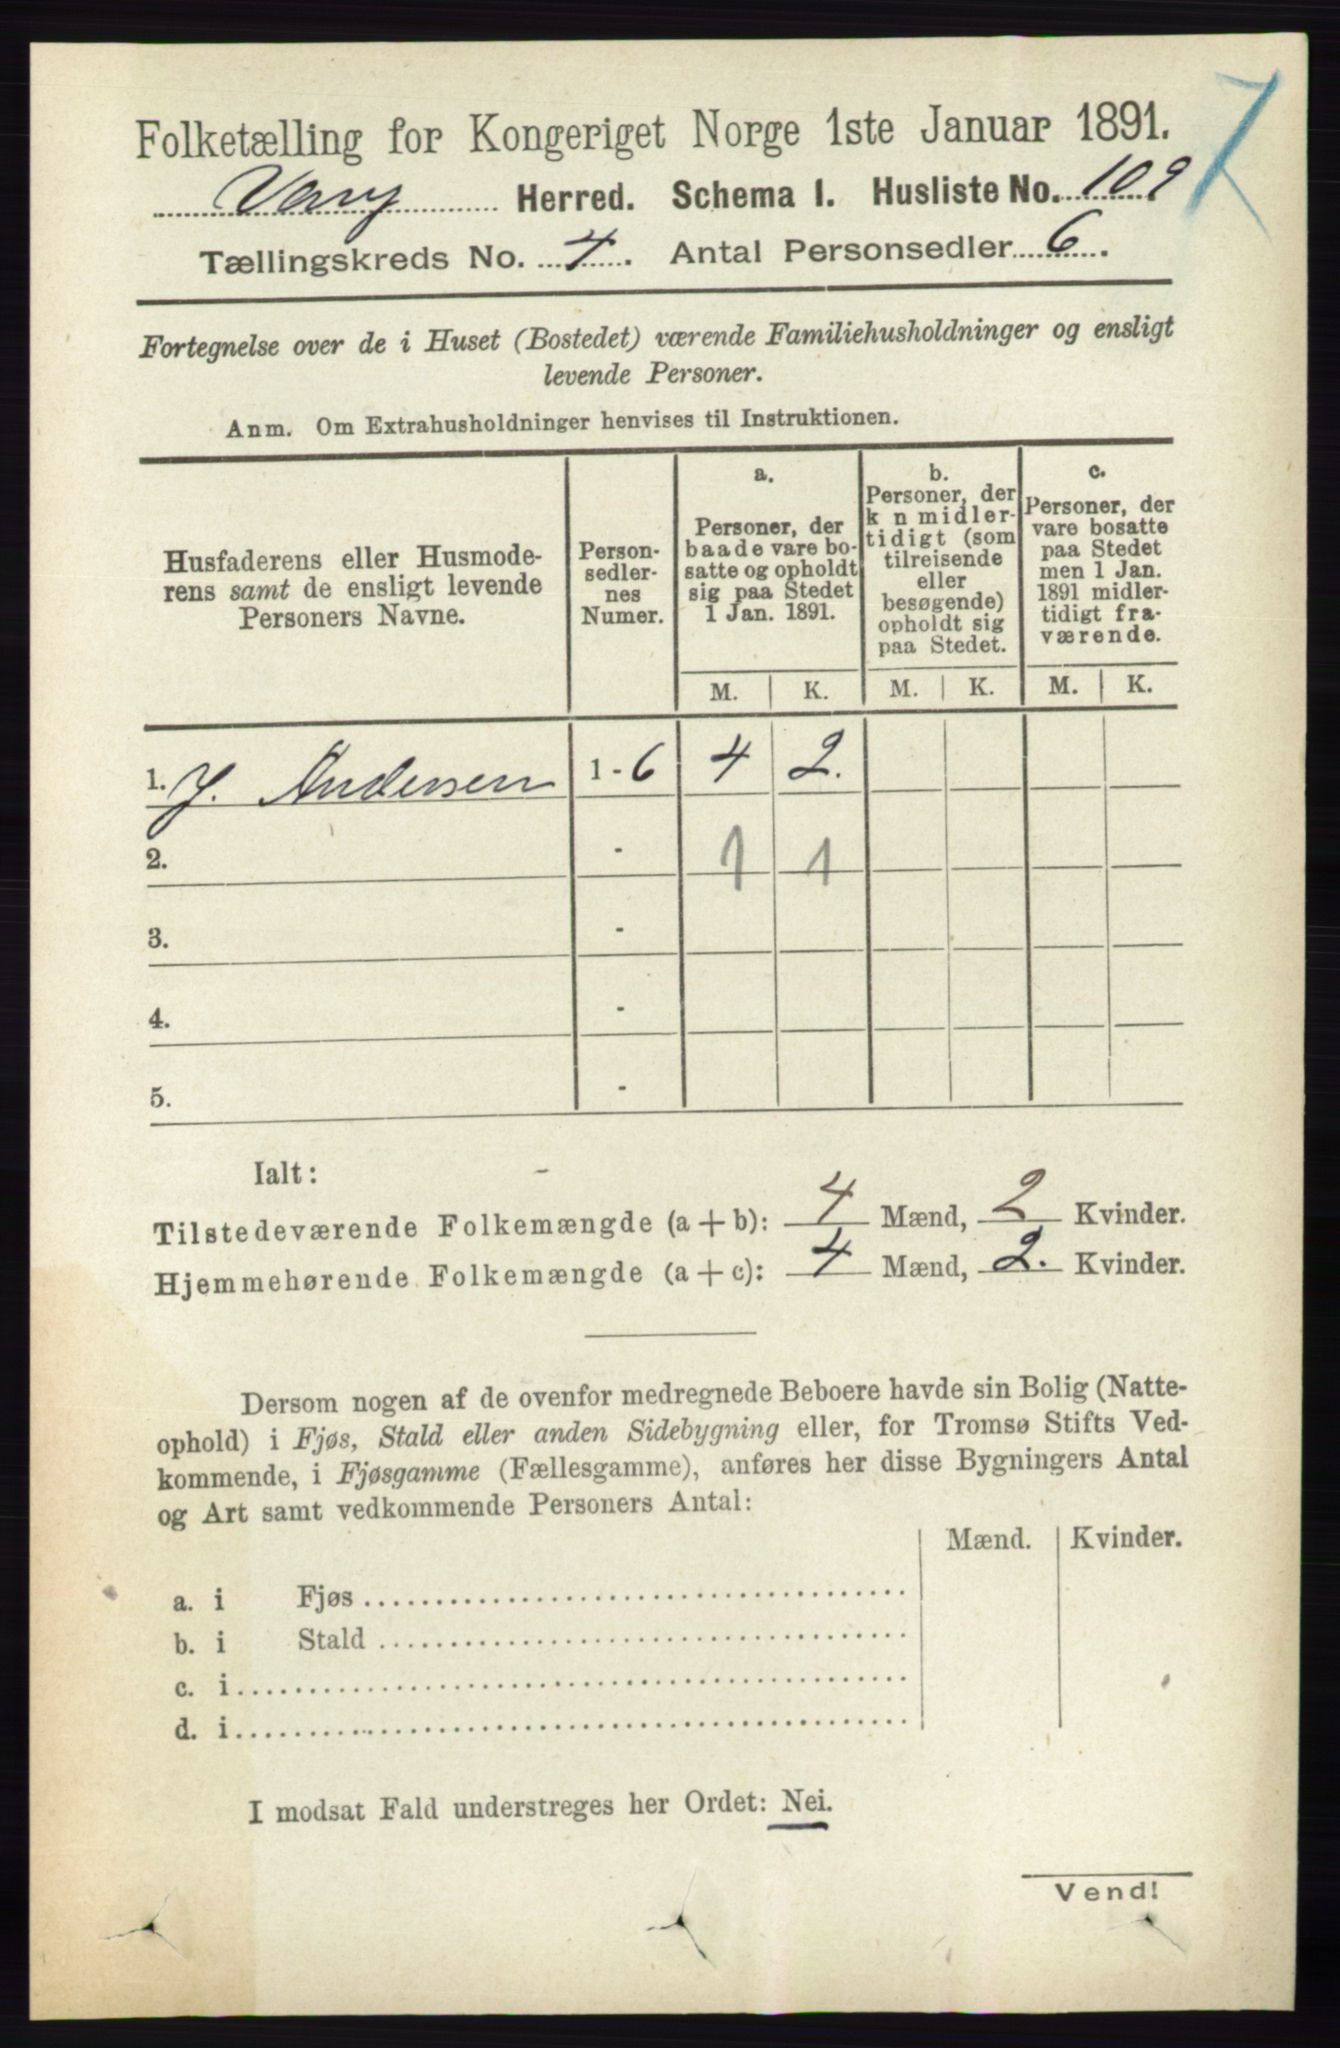 Folketælling for Kongeriget Norge 1ste Januar 1891.
Vang Herred. Schema 1. Husliste No. 109
Tællingskreds No. 4. Antal Personsedler 6.
Fortegnelse over de i Huset (Bostedet) værende Familiehusholdninger og ensligt
levende Personer.
Anm. Om Extrahusholdninger henvises til Instruktionen.
Husfaderens eller Husmode-
rens samt de ensligt levende
Personers Navne.
Person-
sedler-
nes
Numer.
a.
Personer, der
baade vare bo-
satte og opholdt
sig paa Stedet
1 Jan. 1891.
b.
Personer, der
k n midler-
tidigt (som
tilreisende
eller
besøgende)
opholdt sig
paa Stedet.
c.
Personer, der
vare bosatte
paa Stedet
men 1 Jan.
1891 midler-
tidigt fra-
værende.
M. K. M. K. M. K.
1. J. Andersen 1 - 6 4 2.
2. - 1 1
3. -
4. -
5. -
Ialt:
Tilstedeværende Folkemængde (a + b): 4 Mænd, 2 Kvinder.
Hjemmehørende Folkemængde (a + c): 4 Mænd, 2. Kvinder.
Dersom nogen af de ovenfor medregnede Beboere havde sin Bolig (Natte-
ophold) i Fjøs, Stald eller anden Sidebygning eller, for Tromsø Stifts Ved-
kommende, i Fjøsgamme (Fællesgamme), anføres her disse Bygningers Antal
og Art samt vedkommende Personers Antal:
Mænd. Kvinder.
a. i Fjøs
b. i Stald
c. i
d. i
I modsat Fald understreges her Ordet: Nei.
Vend!